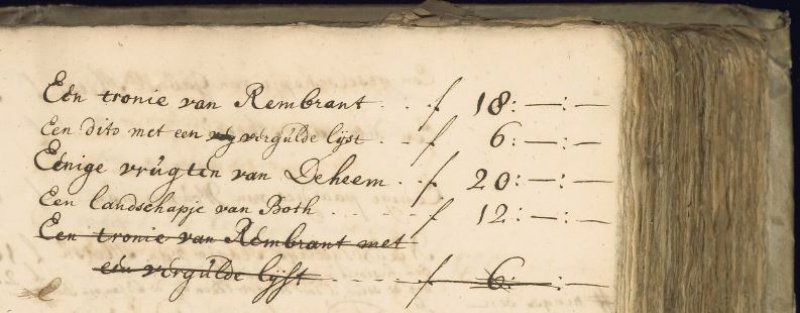 Een tronie van Rembrant . . . ƒ 18:—:—
Een dito met een vergulde lijst . . ƒ 6:—:—
Eenige vrugten van Deheem . . ƒ 20:—:—
Een landschapje van Both . . . . . ƒ 12:—:—
Een tronie van Rembrant met
een vergulde lijst . . . . ƒ 6:—:—